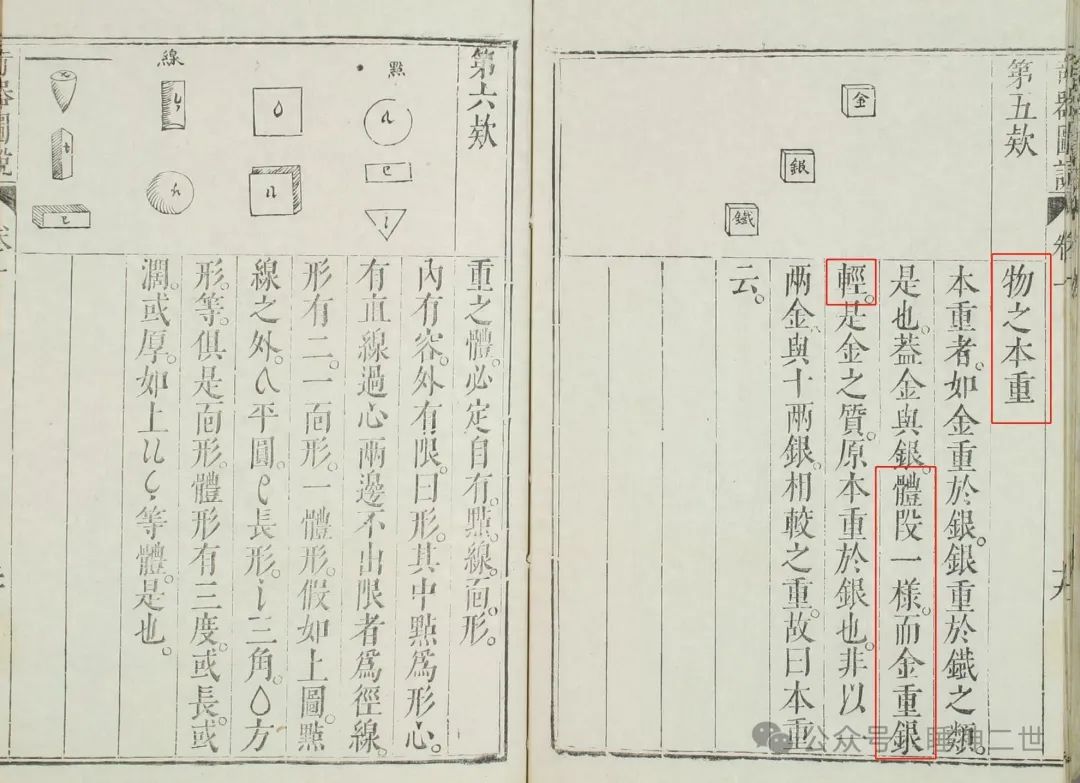 器圖說
第五欵
金
銀
鐵
物之本重
本重者。如金重於銀。銀重於鐵之類。
是也。葢金與銀。體段一樣。而金重銀
輕。是金之質。原本重於銀也。非以一
兩金與十兩銀。相較之重。故曰本重
云。
第六欵
點
線
重之體。必定自有。點。線。面。形。
內有容。外有限。曰形。其中點爲形心。
有直線過心兩邊不出限者爲徑線。
形有二。一面形。一體形。假如上圖。點
線之外。平圓。長形。三角。方
形。等。俱是面形。體形有三度。或長。或
濶。或厚。如上等體。是也。
器圖說
公众号
二世